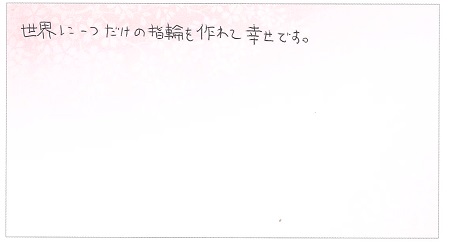 世界に一つだけの指輪を作れて幸せです。